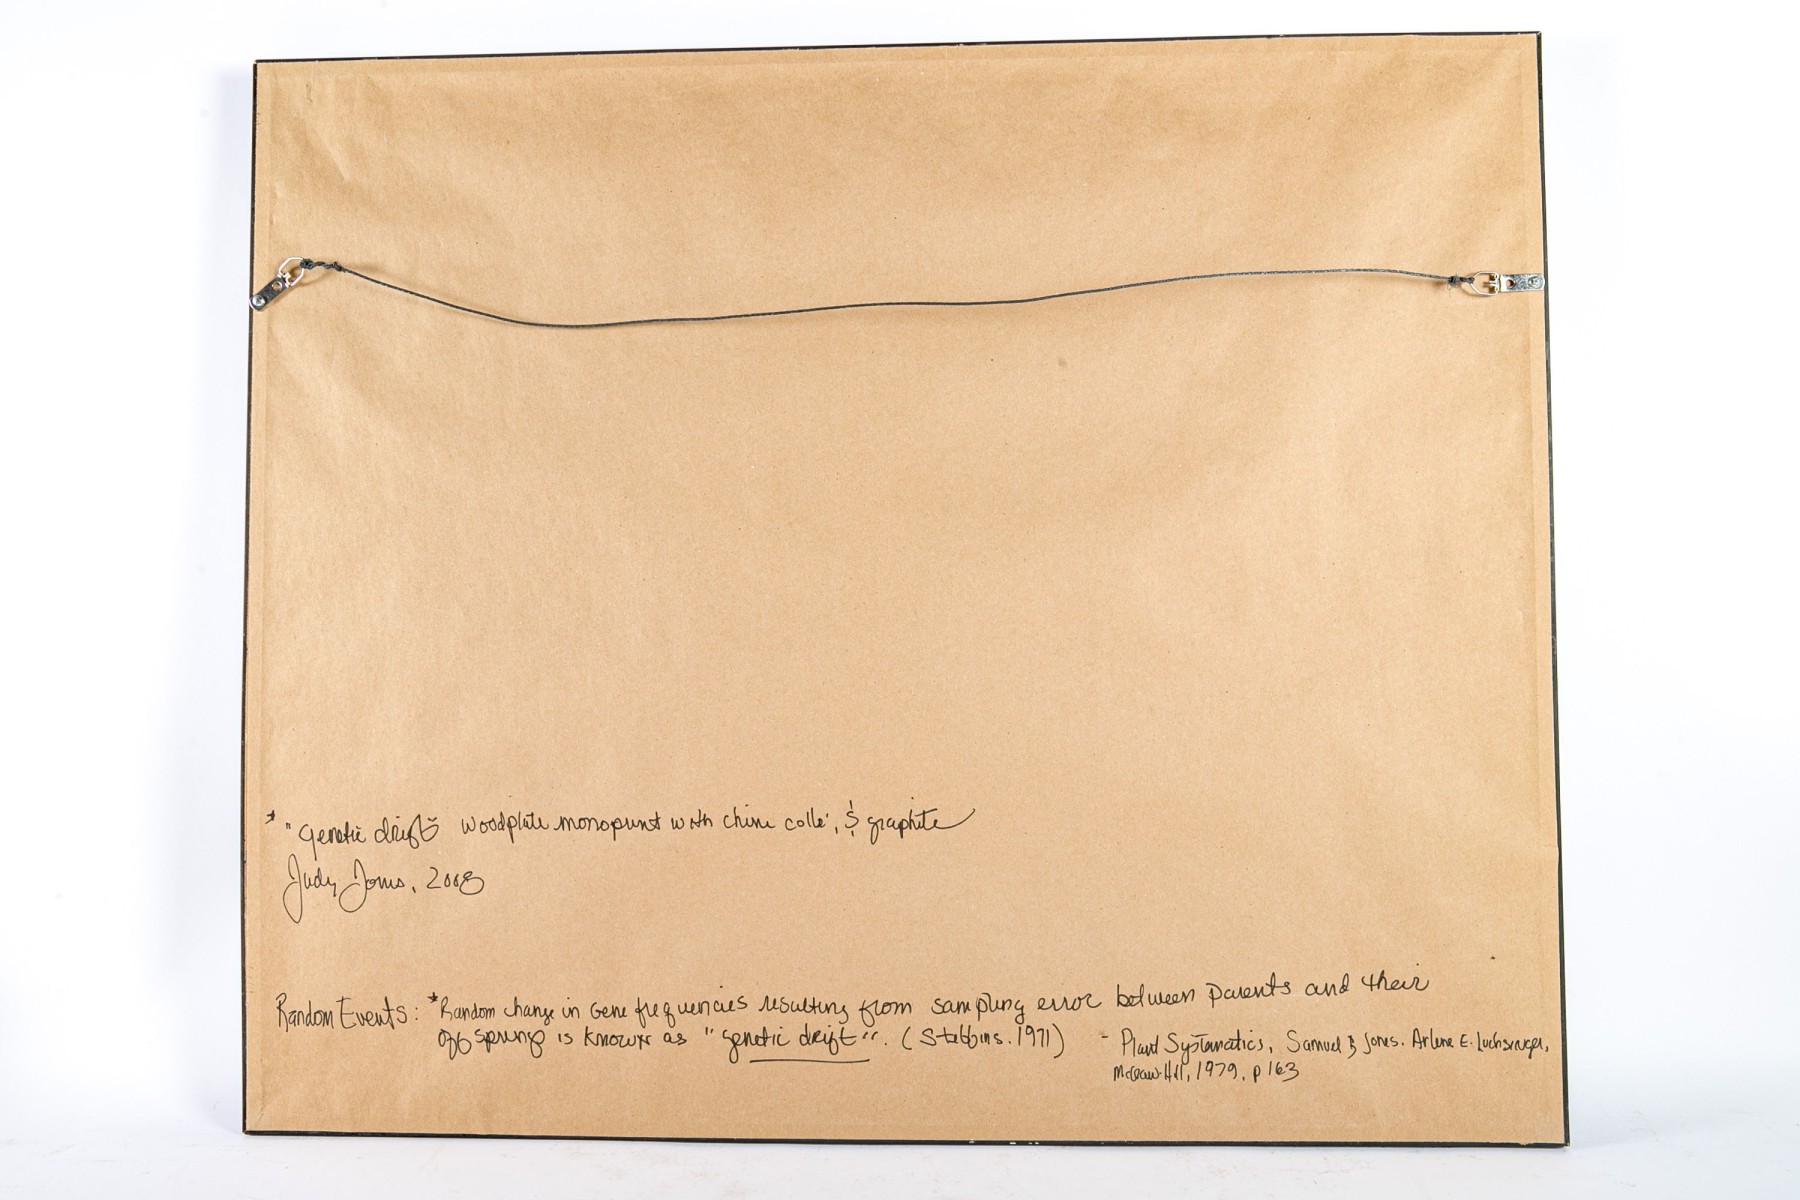 * "Genetic drift" woodplate monoprint with chine colle', & graphite
Judy Jones, 2008
Random Events: *Random change in gene frequencies resulting from sampling error between parents and their
offspring is known as "genetic drift". (Stebbins. 1971)
- Plant Systematics, Samuel B Jones. Arlene E. Luchsinger,
McGraw-Hill, 1979, p 163